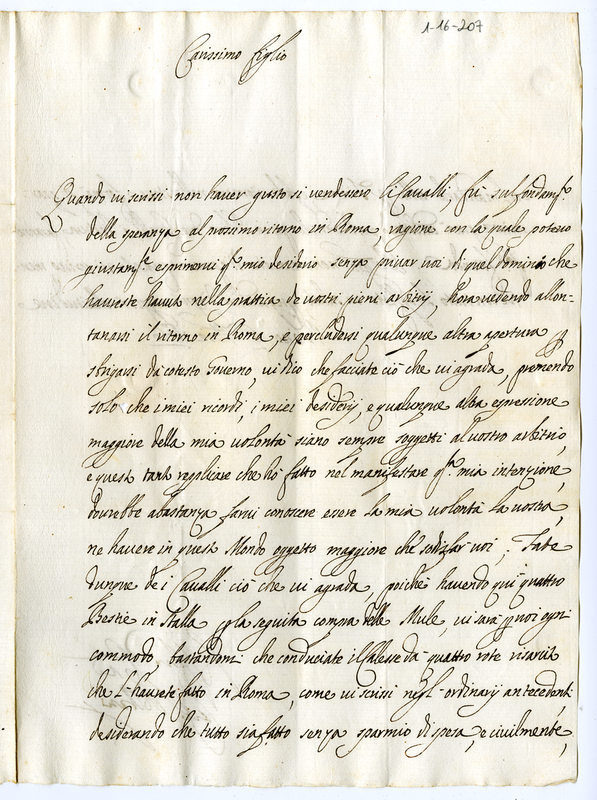 1-16-207
Carissimo figlio
Quando vi scrissi non haver gusto si vendessero li Cavalli, fù sul fondam.to
della speranza al prossimo ritorno in Roma, ragione con la quale potevo
giustam.te esprimervi q.to mio desiderio senza privar voi di quel dominio che
haveste havuta nella prattica de vostri pieni arbitrij, hora vedendo allon-
tanarsi il ritorno in Roma, e percludersi qualunque altra apertura p
sbrigarsi da cotesto Governo, vi dico che facciate ciò che vi agrada, premendo
solo che i miei ricordi, i miei desiderij, e qualunque altra espressione
maggiore della mia volontà siano sempre soggetti al vostro arbitrio,
e questo tanto replicare che hò fatto nel manifestare q.ta mia intenzione,
dovrebbe abastanza farvi conoscere essere la mia volontà la vostra,
ne havere in questo Mondo oggetto maggiore che sodisfar voi; Fate
dunque de i Cavalli ciò che vi agrada, poiche havendo quì quattro
Bestie in Stalla p la seguita compra delle Mule, vi sarà p voi ogni
commodo, bastandomi che conduciate il Calesse da quattro rote
che l'havrete fatto in Roma, come vi scrissi negl'ordinarij antecedenti
desiderando che tutto sia fatto senza sparmio di spesa, e civilmente,